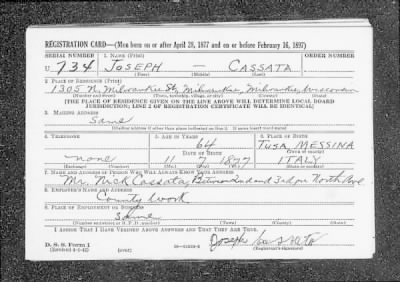 REGISTRATION CARD—(Men born on or after April 28, 1877 and on or before February 16, 1897)
SERIAL NUMBER 1. NAME (Print) ORDER NUMBER
U 734 JOSEPH — CASSATA
(First) (Middle) (Last)
2. PLACE OF RESIDENCE (Print)
1305 N. Milwaukee St, Milwaukee, Milwaukee, Wisconsin
(Number and street) (Town, township, village, or city) (County) (State)
[THE PLACE OF RESIDENCE GIVEN ON THE LINE ABOVE WILL DETERMINE LOCAL BOARD
JURISDICTION; LINE 2 OF REGISTRATION CERTIFICATE WILL BE IDENTICAL]
3. MAILING ADDRESS
Same
[Mailing address if other than place indicated on line 2. If same insert word same]
4. TELEPHONE 5. AGE IN YEARS 6. PLACE OF BIRTH
64 TUSA MESSINA
DATE OF BIRTH (Town or county)
none 11 7 1877 ITALY
(Exchange) (Number) (Mo.) (Day) (Yr.) (State or country)
7. NAME AND ADDRESS OF PERSON WHO WILL ALWAYS KNOW YOUR ADDRESS
Mr. Nick Cassata, 2nd and 3rd on North Ave
8. EMPLOYER'S NAME AND ADDRESS
County Work
9. PLACE OF EMPLOYMENT OR BUSINESS
Same
(Number and street or R. F. D. number) (Town) (County) (State)
I AFFIRM THAT I HAVE VERIFIED ABOVE ANSWERS AND THAT THEY ARE TRUE.
D. S. S. Form 1
(Revised 4-1-42) (over) Joseph
(Registrant's signature)